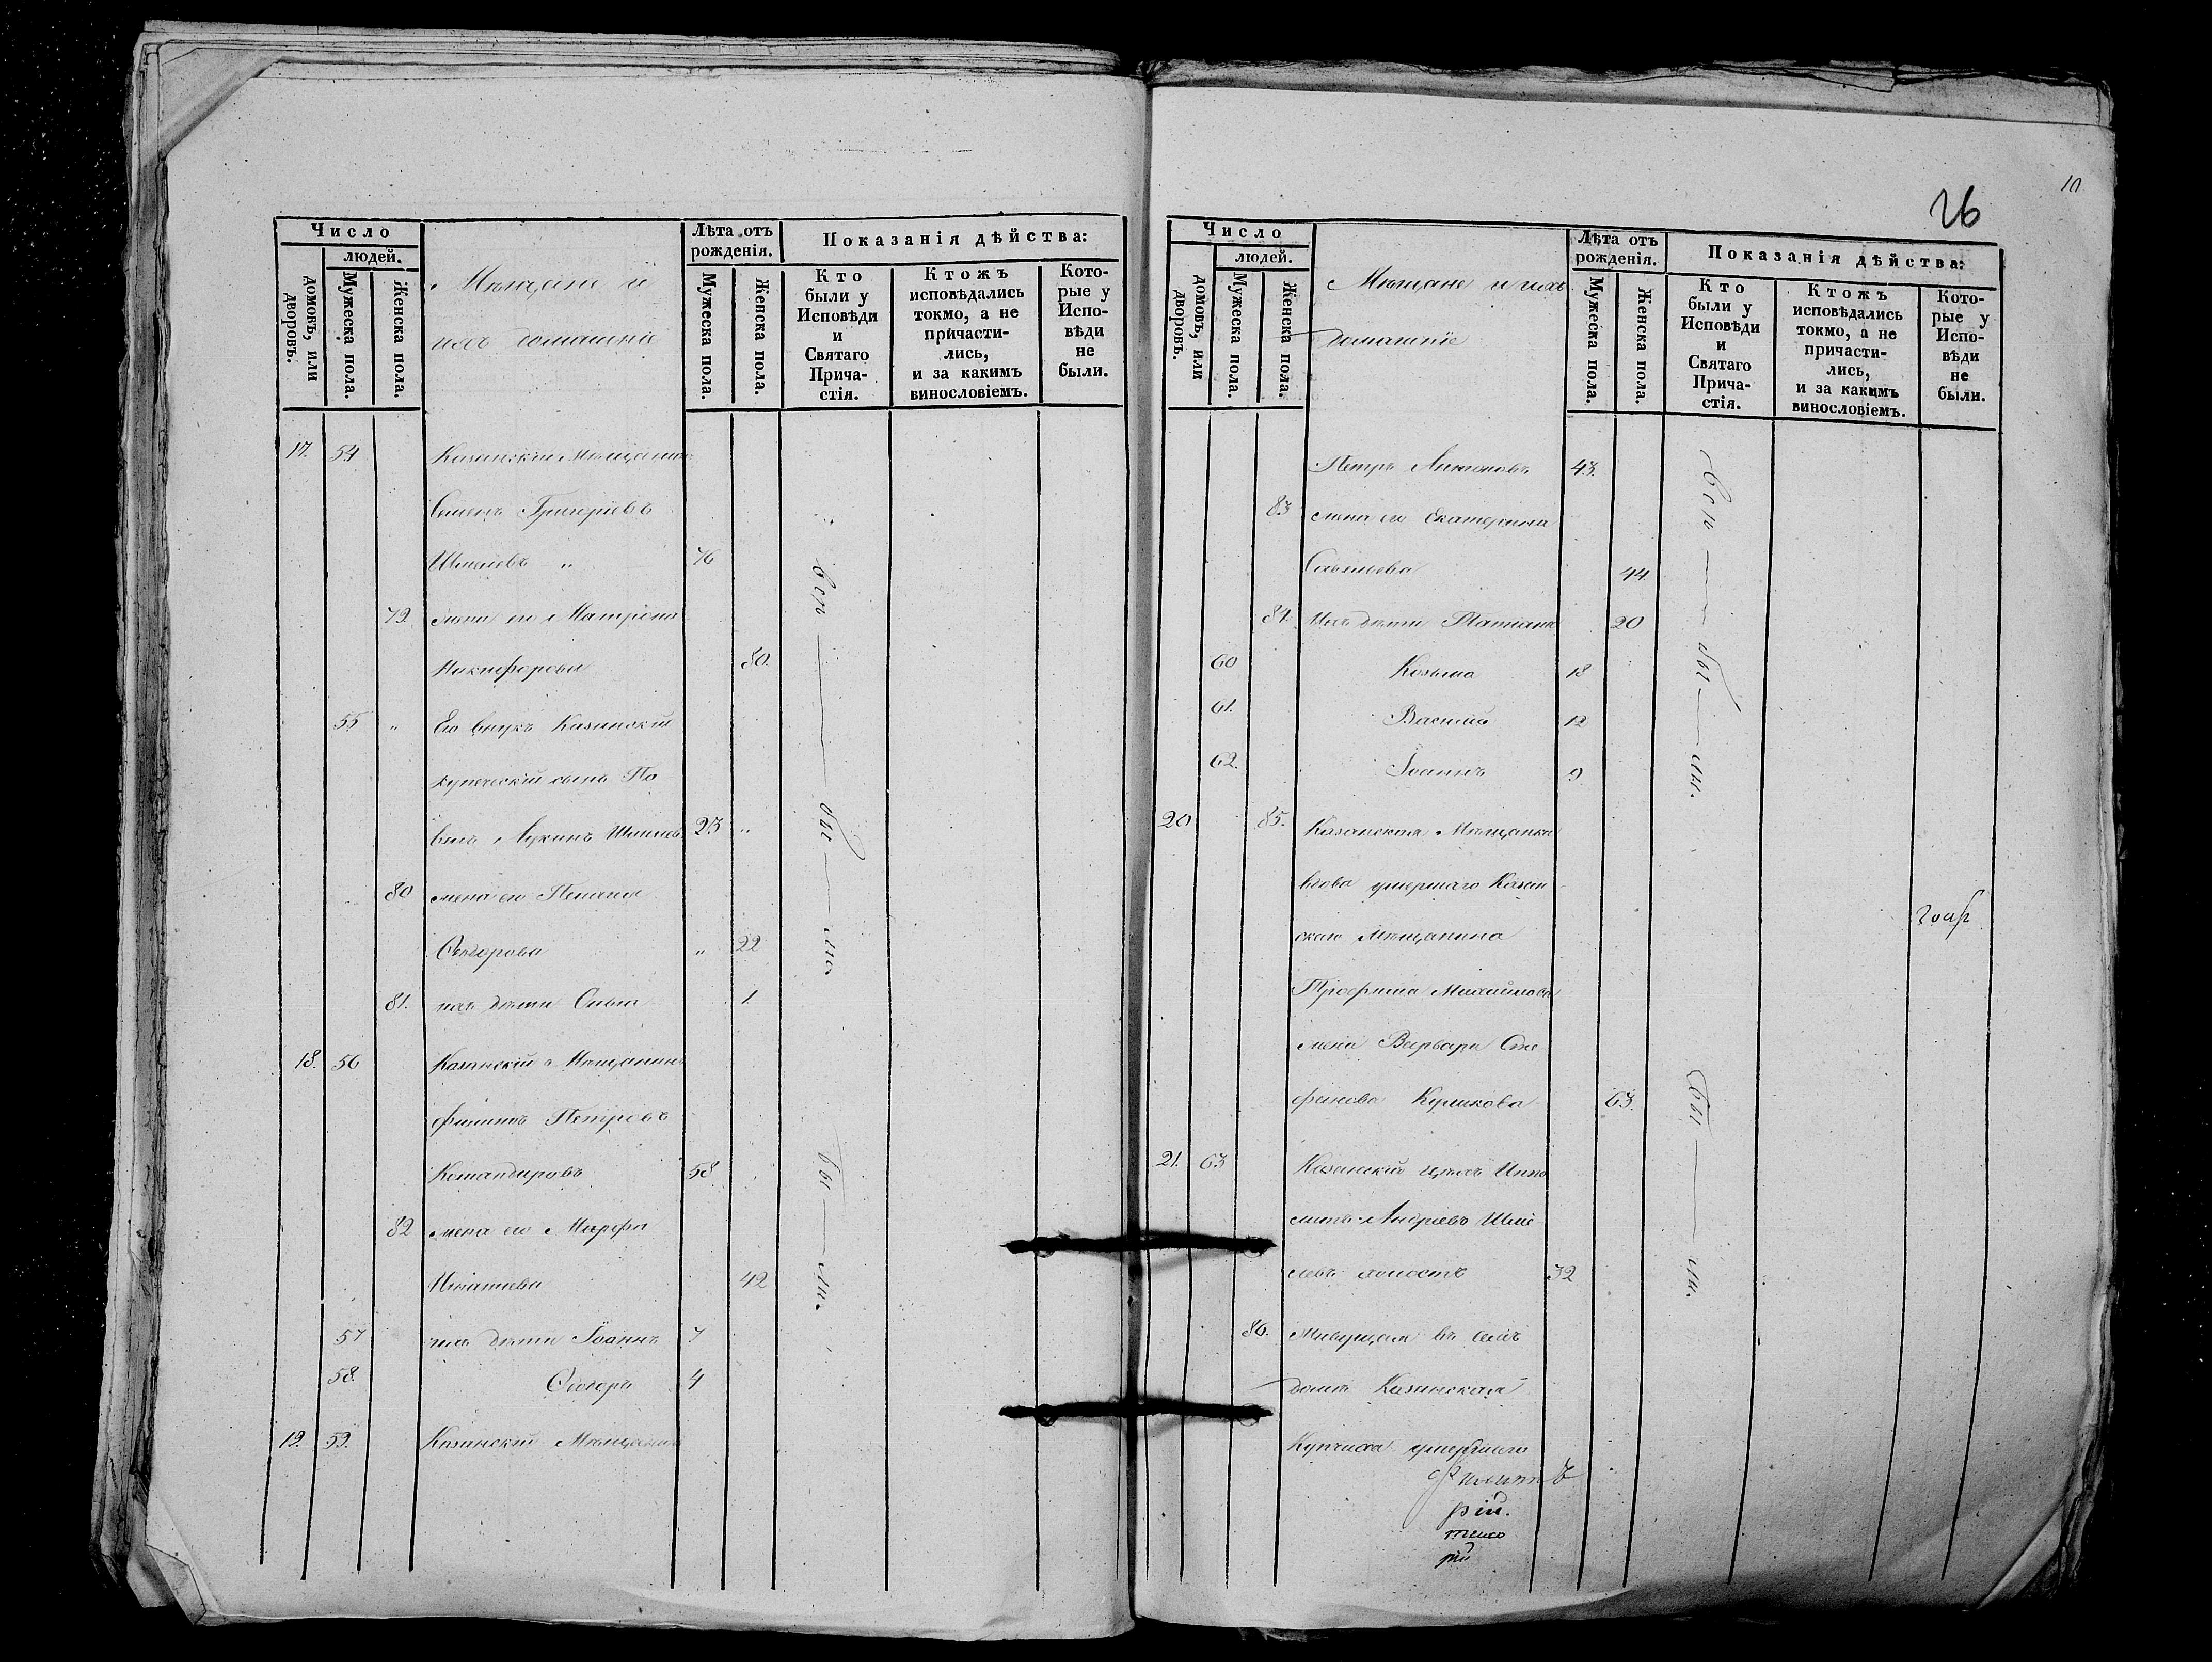 Число
людей.
домовъ, или дворовъ.
Мужеска пола.
Женска пола.
Мѣщане и
ихъ домашніе
Лѣта отъ рожденія.
Мужеска пола.
Женска пола.
Показанія дѣйства:
Кто были у Исповѣди и Святаго Прича-стія.
Ктожъ исповѣдались токмо, а не причасти-лись, и за какимъ винословіемъ.
Кото-рые у Испо-вѣди не были.
17. 54 Казанскій Мѣщанинъ
Семенъ Григорьевъ
Шмелевъ 76
79. жена его Матрона
Никифорова 80.
55 Его внукъ Казанскій
купеческій сынъ Па
велъ Лукинъ Шмелевъ 23
80 жена его Пелагея
Ѳедорова 22
81. ихъ дѣти Ольга 1
всѣ — бы — ли.
18. 56 Казанскій Мѣщанинъ
Филиппъ Петровъ
Командировъ 58
82 жена его Марфа
Игнатьева 42
57 ихъ дѣти Іоаннъ 7
58. Ѳеодоръ 4
бы — ли.
19. 59. Казанскій Мѣщанинъ
10
26
Число
людей.
домовъ, или дворовъ.
Мужеска пола.
Женска пола.
Мѣщане и ихъ
домашніе
Лѣта отъ рожденія.
Мужеска пола.
Женска пола.
Показанія дѣйства:
Кто были у Исповѣди и Святаго Прича-стія.
Ктожъ исповѣдались токмо, а не причасти-лись, и за какимъ винословіемъ.
Кото-рые у Испо-вѣди не были.
Петръ 43.
83 жена его Екатерина
Савельева 44
84. Ихъ дѣти Татіана 20
60 Козьма 18
61. Василій 12
62. Іоаннъ 9
всѣ — бы — ли.
20 85. Казанская Мѣщанка
вдова умершаго Казан
скаго Мѣщанина
Трофима Михайлова
жена Варвара
Куликова 63.
21. 63 Казанскій цехъ Иппо
литъ Андреевъ Шме
левъ холостъ 32
86. Живущая въ семъ
домѣ Казанская
Купчиха умершаго
бы — ли.
Филиппъ
рій.
рій